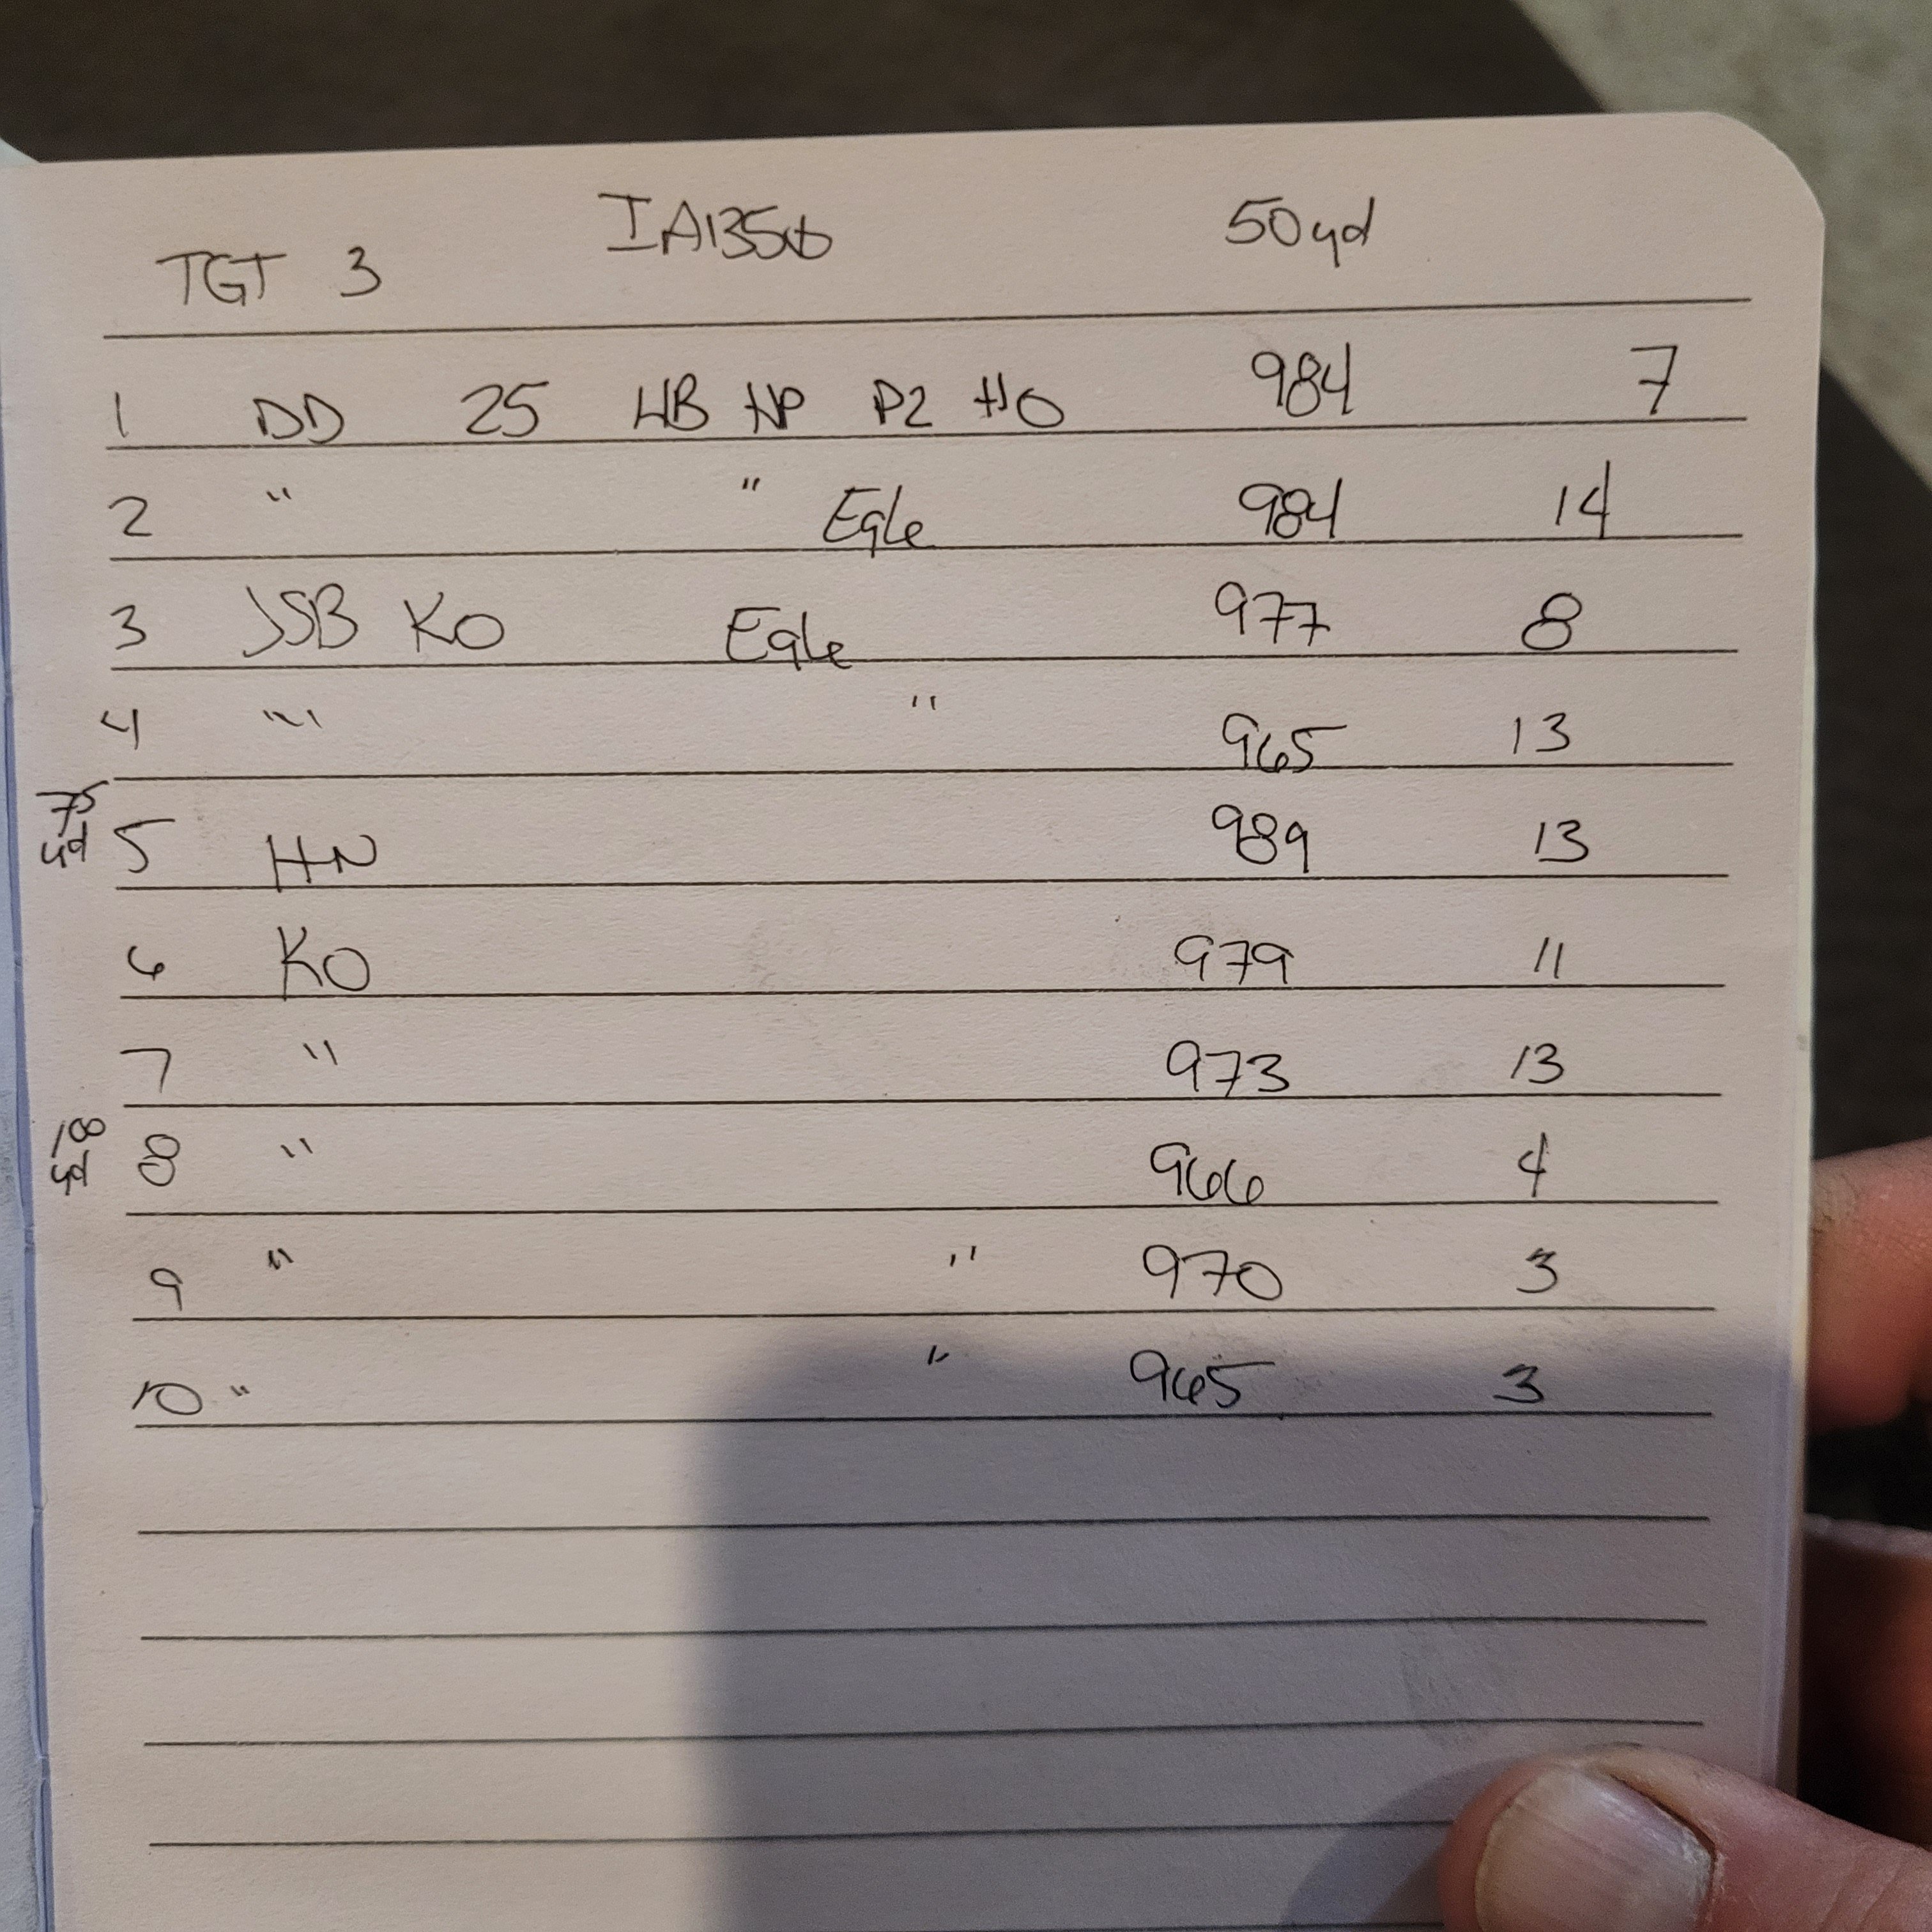 TGT 3 IA1350 50yd
1 DD 25 HB NP P2 HO 984 7
2 " " Egle 984 14
3 JSB KO Egle 977 8
4 " " 965 13
75 yd 5 HN 989 13
6 KO 979 11
7 " 973 13
100 yd 8 " 966 4
9 " " 970 3
10 " " 965 3